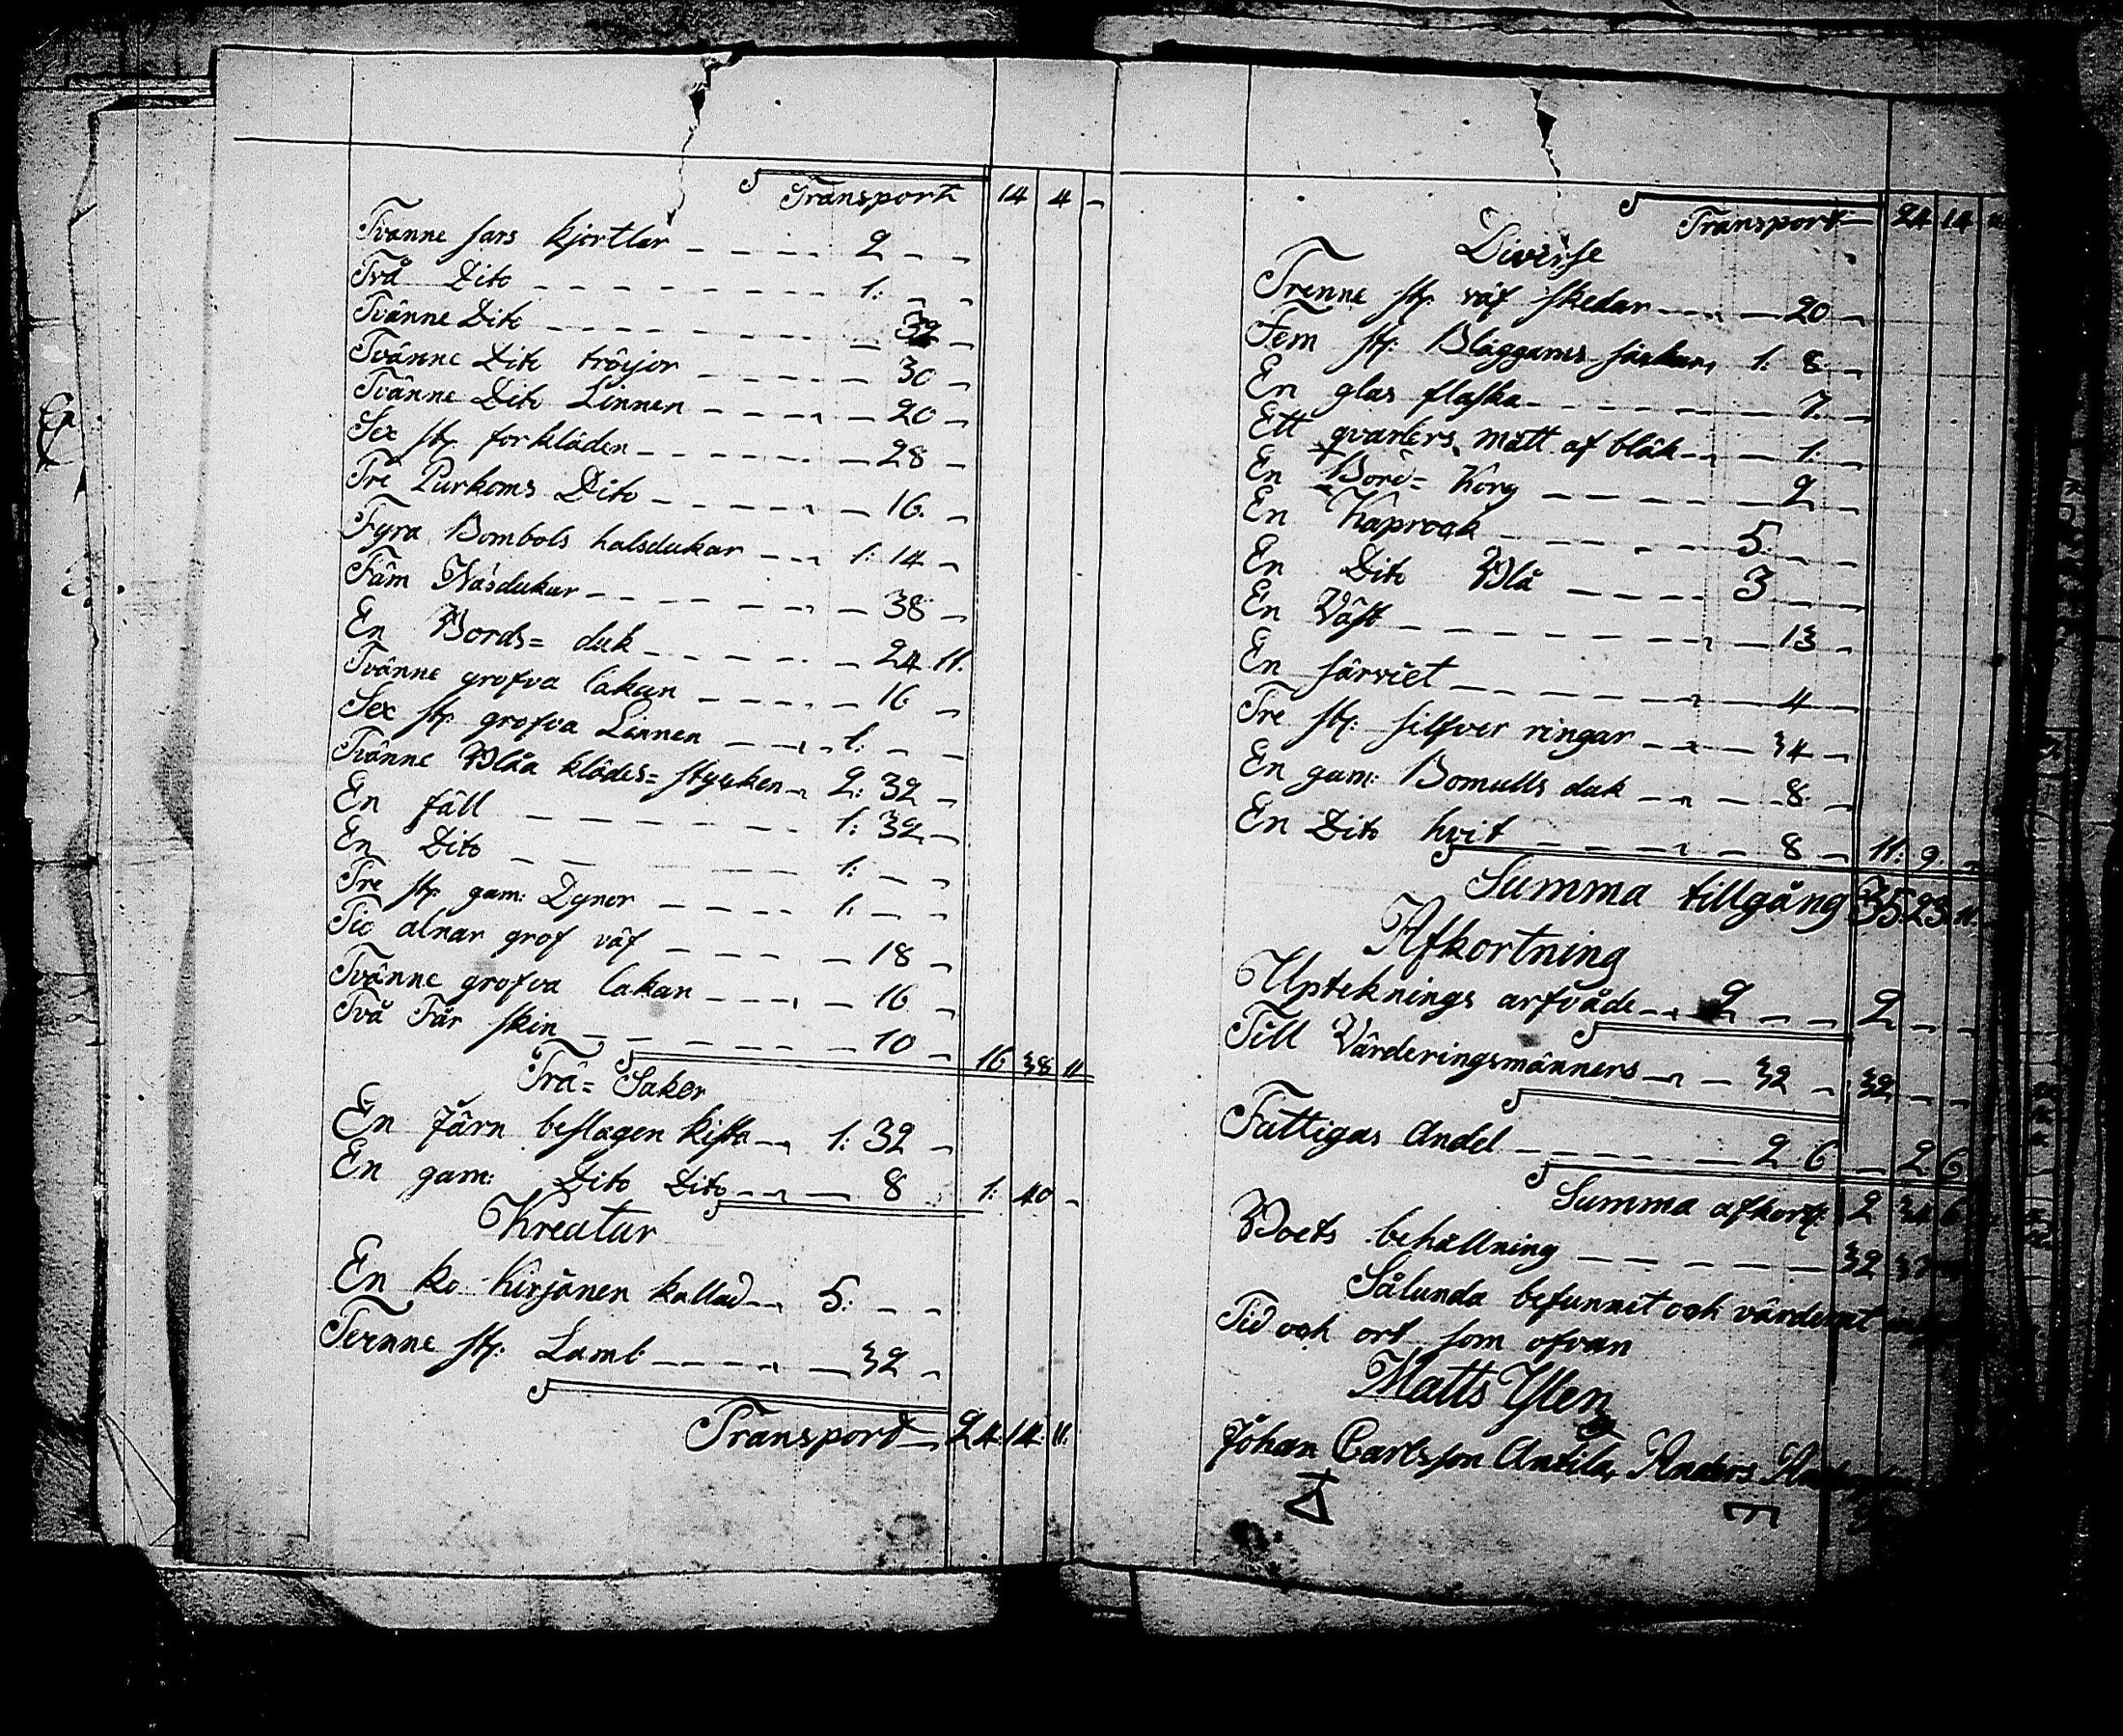 Transport 14 4 –
Tvänne sars kjortlar – – – – 2 – –
Två Dito – – – – – – – 1: – –
Tvänne Dito – – – – – – 32 –
Tvänne Dito tröijor – – – – 30 –
Tvänne Dito Linnen – – – – 20 –
Sex st: forkläden – – – – – 28 –
Tre Purkoms Dito – – – – – 16. –
Fyra Bombols halsdukar – – – 1: 14 –
Fäm Näsdukar – – – – – – 38 –
En Bords= duk – – – – – – 24 11.
Tvänne grofva lakan – – – – 16 –
Sex st: grofva Linnen – – – 1: – –
Tvänne Blåa klädes= stycken – 2: 32 –
En fäll – – – – – – – 1: 32 –
En Dito – – – – – – – 1: – –
Tre st: gam: Dynor – – – – 1: – –
Tio alnar grof väf – – – – – 18 –
Tvänne grofva lakan – – – – 16 –
Två Får skin – – – – – – 10 – 16 38 11
Trä= Saker
En Järn beslagen kista – 1: 32 –
En gam: Dito Dito – – – 8 1: 40 –
Kreatur
En ko Kirjånen kallad – 5: – –
Ternne st: Lamb – – – – 32 –
Transport – 24: 14: 11.
Transport – 24 14
Diverse
Trenne st: väf skedar – – – 20 –
Fem st: Blaggarns 1: 8 –
En glas flaska – – – – – 7 –
Ett qvarters mått af bläk – – 1: –
En Bord= Korg – – – – – 2 –
En Kaprock – – – – 5. – –
En Dito Blå – – – – 3 – –
En Väst – – – – – – – 13 –
En särviet – – – – – – 4 –
Tre st: silfver ringar – – – 34 –
En gam: Bomulls duk – – – 8 –
En Dito hvit – – – – – 8 – 11: 9. –
Summa tillgång 35 23 11.
Afkortning
Upteknings arfvåde – 2 – – 2 – –
Till Värderingsmänners – – 32 – 32 – –
Fattigas Andel – – – – – 2 6 – 2 6
Summa afkort: 2 34 6
Boets behållning – – – – – 32 37
Sålunda befunnit och värderat
Tid och ort som ofvan
Matts Ylen
Johan Carlsson Antila, Anders